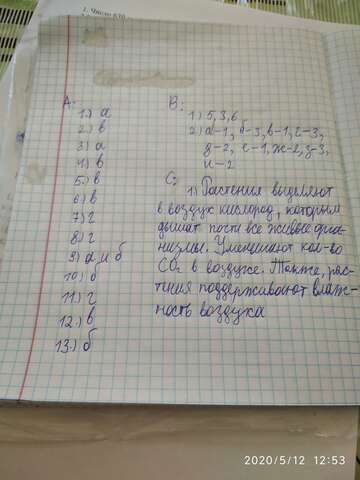 1. Число
A:
1.) а
2.) в
3.) а
4.) в
5.) в
6.) в
7.) г
8.) г
9.) а, и б
10.) б
11.) г
12.) в
13.) б
B:
1) 5, 3, 6
2) а-1, б-3, в-1, г-3,
д-2, е-1, ж-2, з-3,
и-2
C:
1) Растения выделяют
в воздух кислород, которым
дышат почти все живые орга-
низмы. Уменшают кол-во
CO₂ в воздухе. Также, рас-
тения поддерживают влаж-
ность воздуха
2020/5/12 12:53